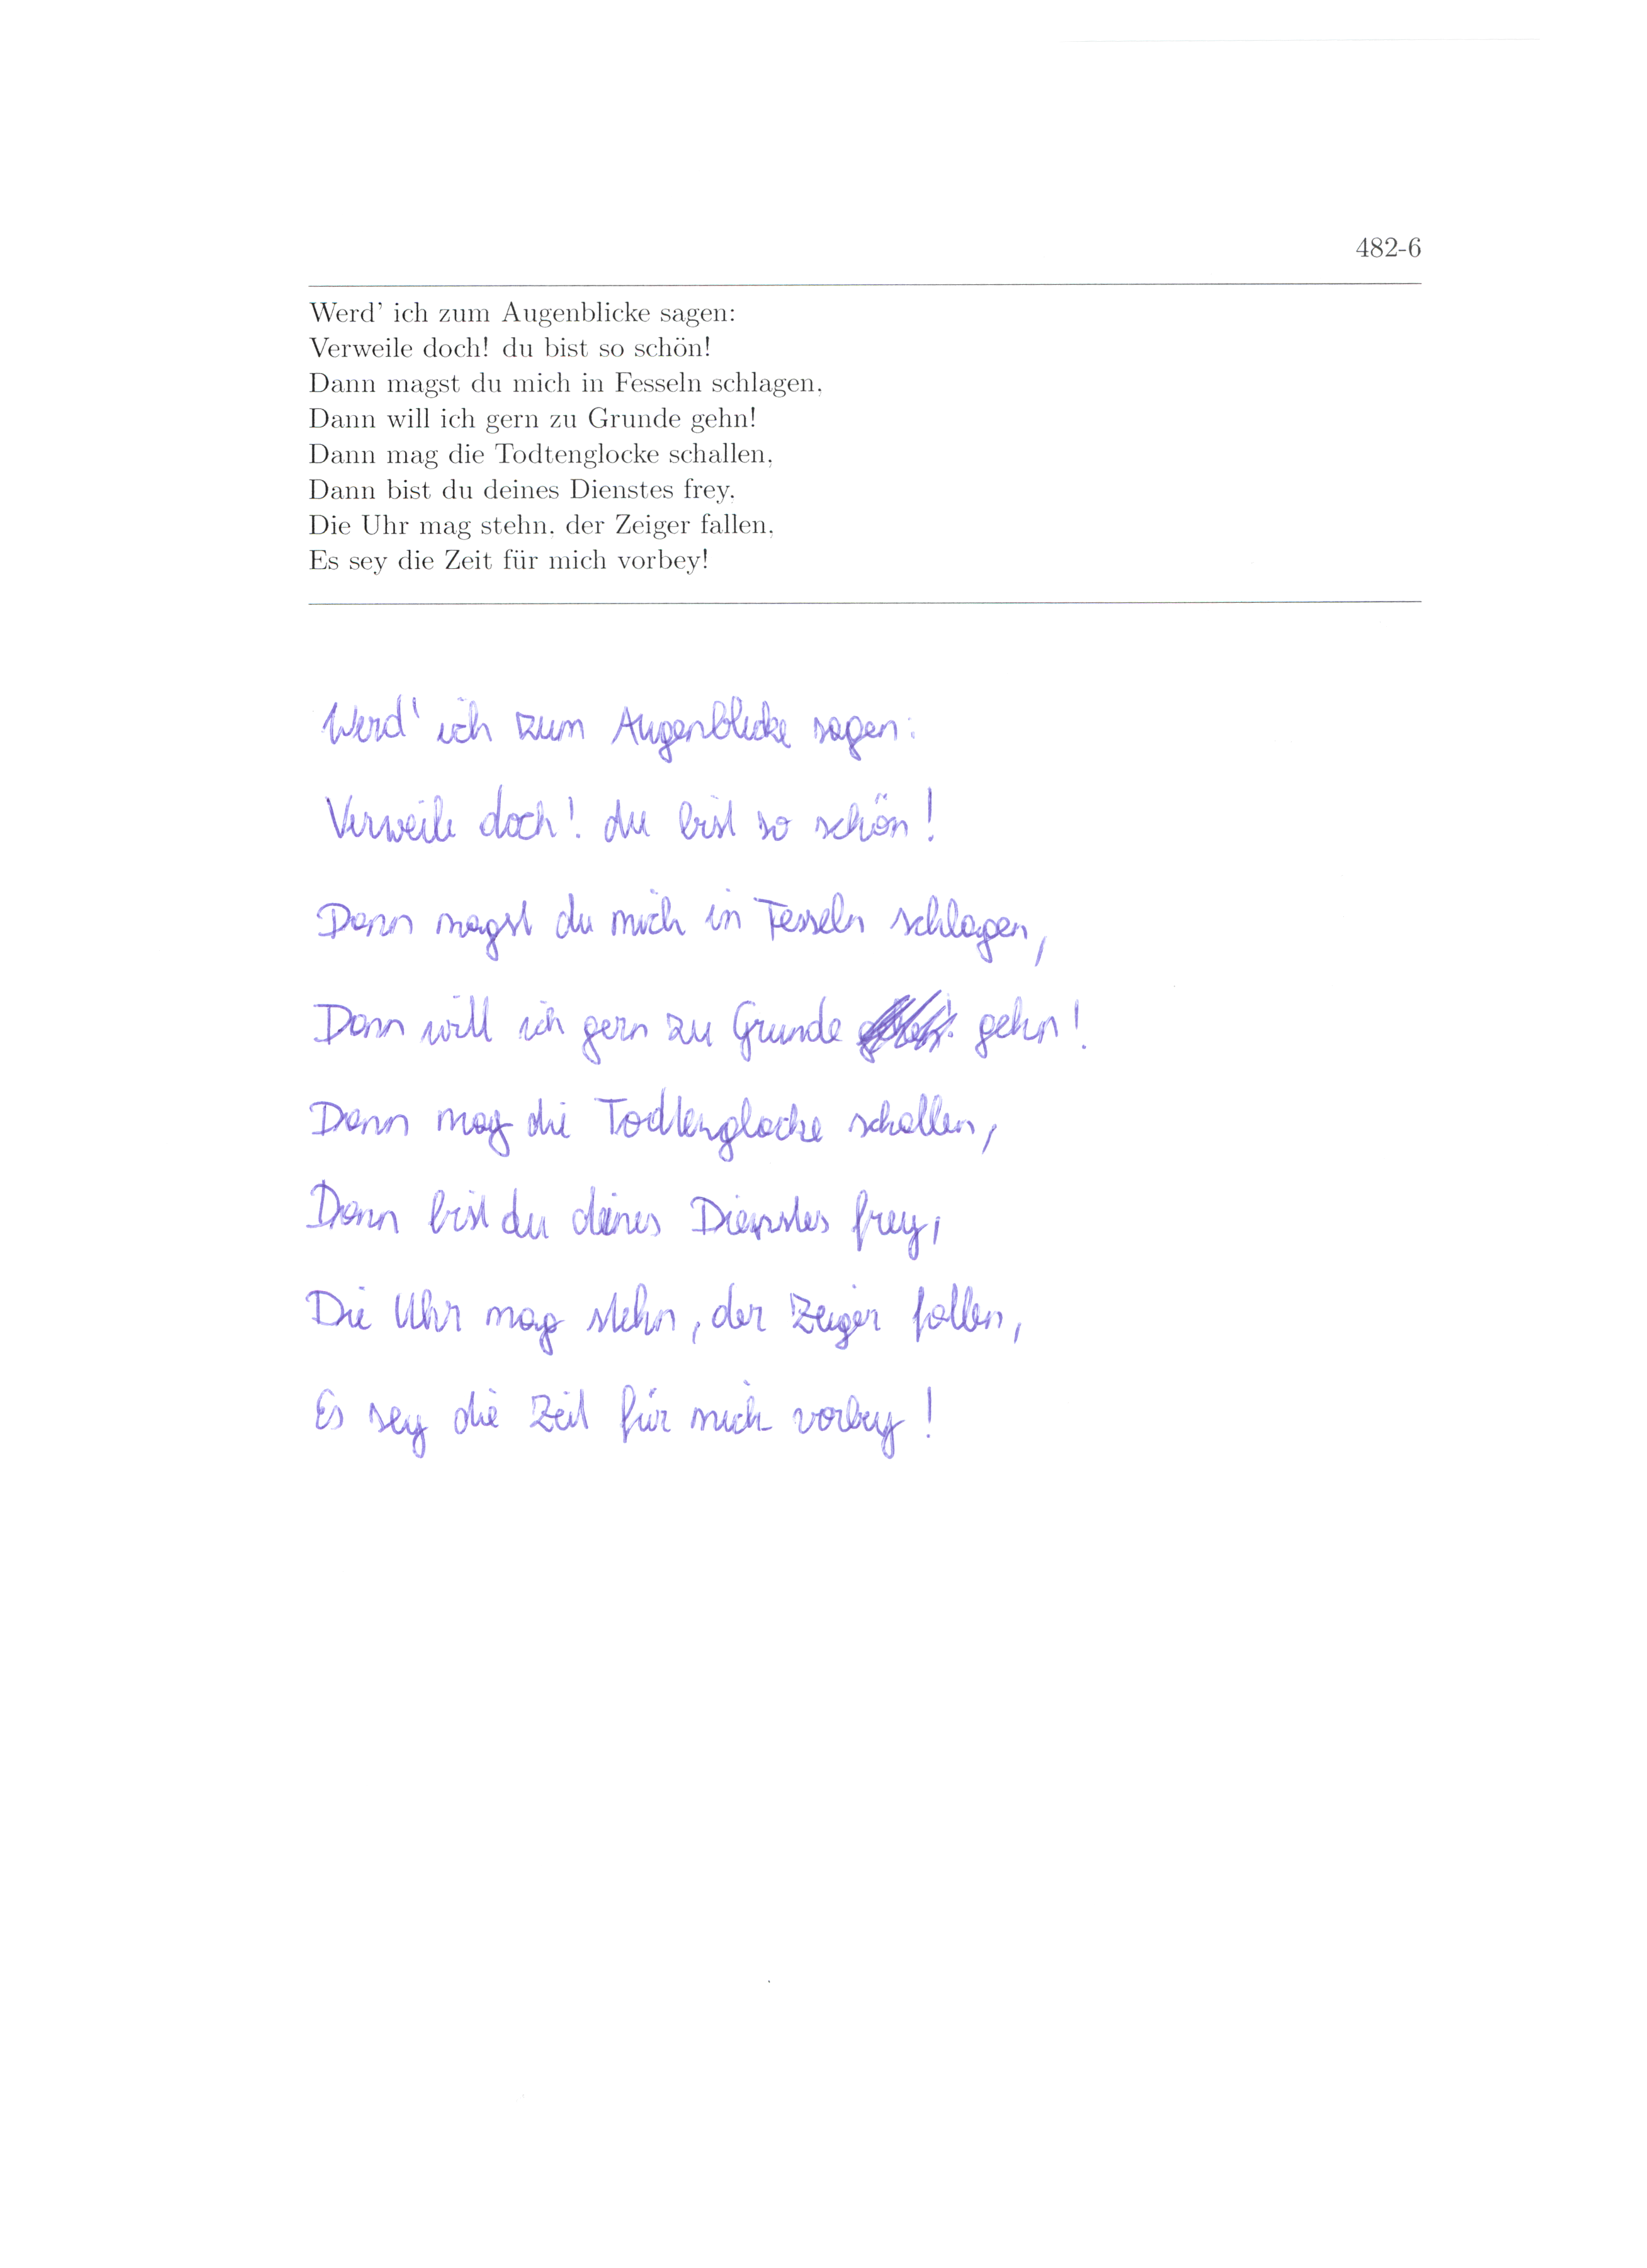 482-6
Werd' ich zum Augenblicke sagen:
Verweile doch! du bist so schön!
Dann magst du mich in Fesseln schlagen,
Dann will ich gern zu Grunde gehn!
Dann mag die Todtenglocke schallen,
Dann bist du deines Dienstes frey.
Die Uhr mag stehn, der Zeiger fallen,
Es sey die Zeit für mich vorbey!
Werd' ich zum Augenblicke sagen:
Verweile doch! du bist so schön!
Dann magst du mich in Fesseln schlagen,
Dann will ich gern zu Grunde gehn!
Dann mag die Todtenglocke schallen,
Dann bist du deines Dienstes frey,
Die Uhr mag stehn, der Zeiger fallen,
Es sey die Zeit für mich vorbey!